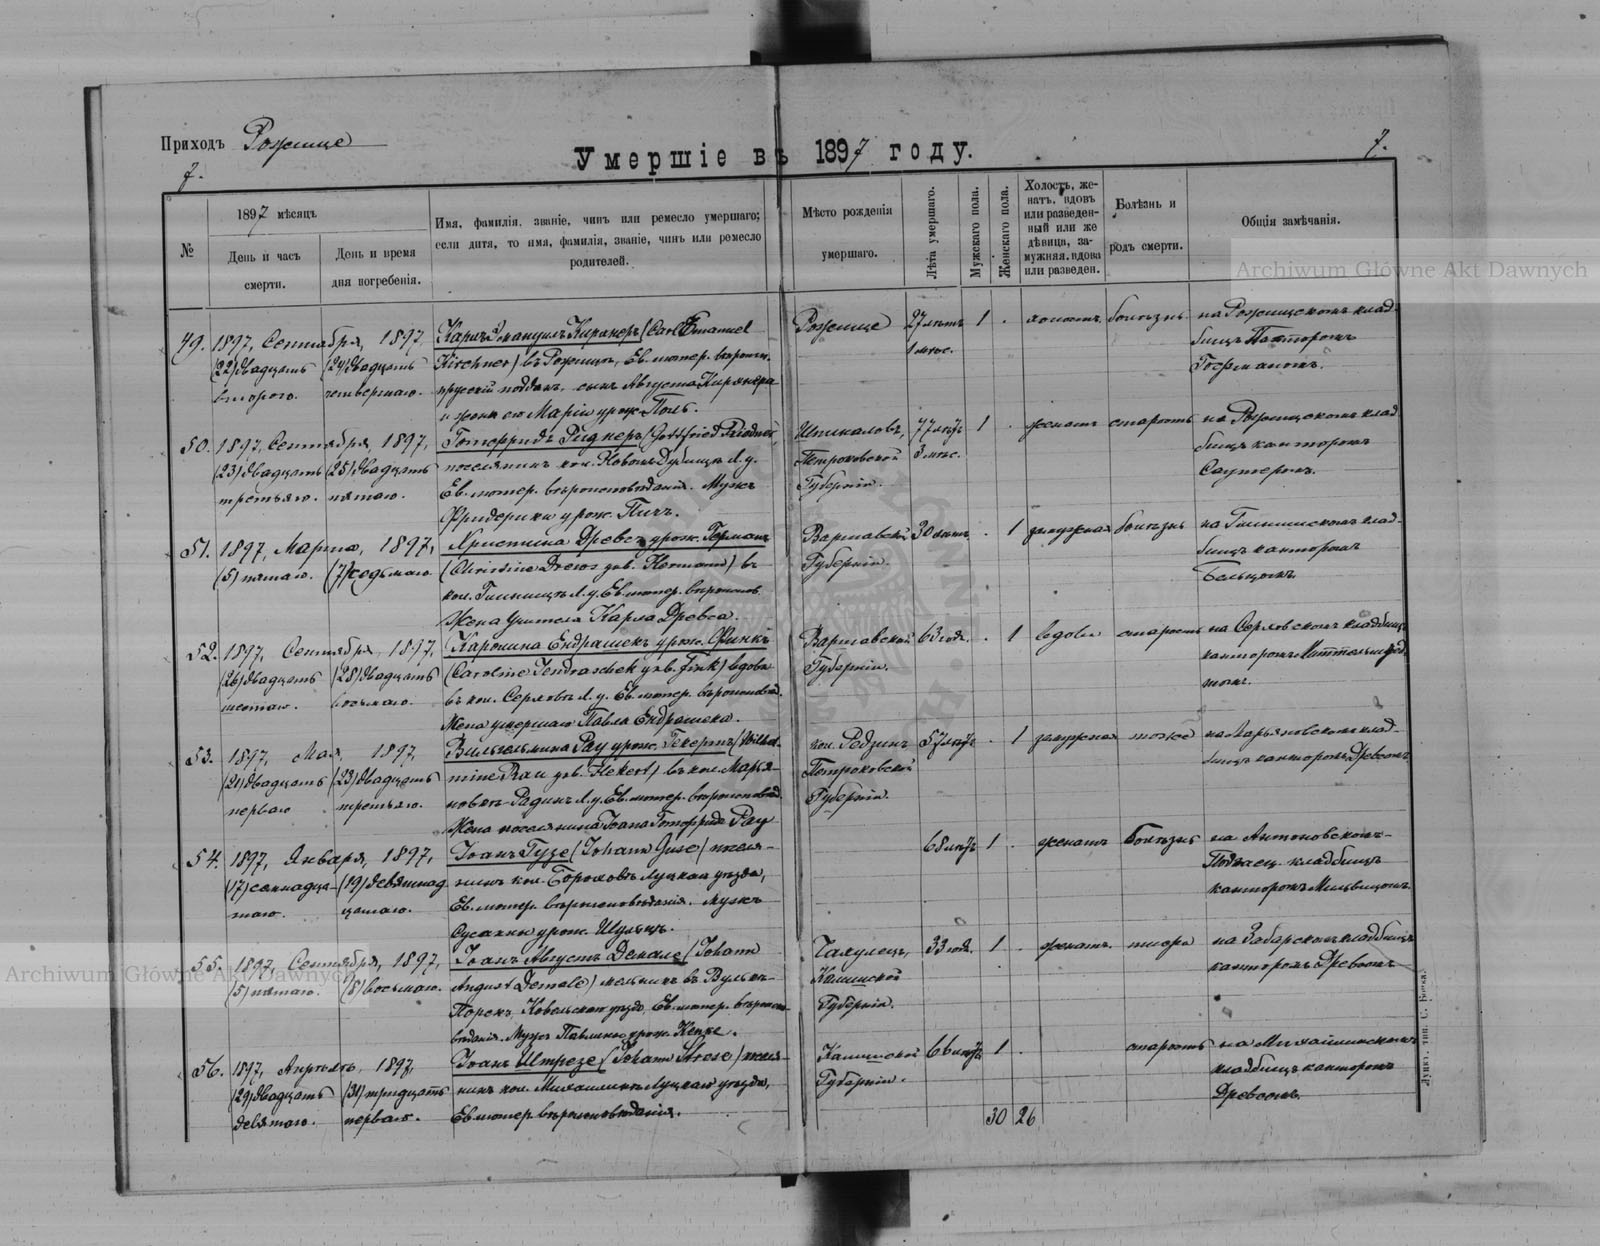 Приходъ Рожище
Умершіе въ 1897 году.
7.
7.
№
1897 мѣсяцъ
День и часъ
смерти.
День и время
дня погребенія.
Имя, фамилія, званіе, чинъ или ремесло умершаго;
если дитя, то имя, фамилія, званіе, чинъ или ремесло
родителей.
Мѣсто рожденія
умершаго.
Лѣта умершаго.
Мужскаго пола.
Женскаго пола.
Холостъ, же-
натъ, вдовъ
или разведен-
ный или же
дѣвица, за-
мужняя, вдова
или разведен.
Болѣзнь и
родъ смерти.
Общія замѣчанія.
49. 1897, Сентября, 1897, Карлъ Эмануилъ Кирхнеръ (Carl Emanuel Рожище 27 лѣтъ 1 . холостъ болѣзнь на Рожищскомъ клад-
(22) двадцать (24) двадцать Kirchner) въ Рожищѣ, Ев. лютер. 1 мѣс. бищѣ Пасторомъ
второго. четвертаго. прусскій поддан. сынъ Августа Кирхнера Гофманомъ.
и жены его Маріи урож. Поль.
50. 1897, Сентября, 1897, Готфридъ Риднеръ (Gottfried Riedner) 77 лѣтъ 1 . женатъ старость на Рожищскомъ клад-
(23) двадцать (25) двадцать поселянинъ кол. Л. у. Петроковской 3 мѣс. бищѣ канторомъ
третьяго. пятаго. Ев. лютер. вѣроисповѣданія. Мужъ Губерніи. Саутеромъ.
Фридерики урож. Пичъ.
51. 1897, Марта, 1897, Христина Древсъ урож. Германъ Варшавской 30 лѣтъ . 1 замужняя болѣзнь на клад-
(5) пятаго. (7) седьмаго. (Christine Drews geb. Hermann) въ Губерніи. бищѣ канторомъ
кол. Л. у. Ев. лютер. вѣроисповѣд.
Жена Учителя Карла Древса.
52. 1897, Сентября, 1897, Каролина Ендрашекъ урож. Финкъ Варшавской 63 года . 1 вдова старость на кладбищѣ
(26) двадцать (28) двадцать (Caroline Jendraschek geb. Fink) вдова Губерніи. канторомъ
шестаго. восьмаго. въ кол. Л. у. Ев. лютер. вѣроисповѣд.
Жена умершаго Павла Ендрашека.
53. 1897, Мая, 1897, Вильгельмина Рау урож. Гекертъ (Wilhel- кол. Радзинъ 57 лѣтъ . 1 замужняя тоже на Марьяновскомъ клад-
(21) двадцать (23) двадцать mine Rau geb. Hekert) въ кол. Марья- Петроковской бищѣ канторомъ Древсомъ
перваго третьяго. новкѣ Л. у. Ев. лютер. вѣроисповѣд. Губерніи.
Жена поселянина Іоана Готфрида Рау
54. 1897, Января, 1897, Іоанъ Гузе (Johann Guse) поселя- 68 лѣтъ 1 . женатъ болѣзнь на Антоновскомъ-
(17) семнадца- (19) девятнад- нинъ кол. Луцкаго уѣзда, кладбищѣ
таго. цатаго. Ев. лютер. вѣроисповѣданія. Мужъ канторомъ
Сусанны урож. Шульцъ.
55. 1897, Сентября, 1897, Іоанъ Августъ Демале (Johann 33 года 1 . женатъ на Забарскомъ кладбищѣ
(5) пятаго. (8) восьмаго. August Demale) мельникъ въ Калишской канторомъ Древсомъ
Ковельскаго уѣзда, Ев. лютер. вѣроиспо- Губерніи.
вѣданія. Мужъ Павлины урож.
56. 1897, Апрѣль, 1897, Іоанъ Штрезе (Johann Strese) поселя- Калишской 66 лѣтъ 1 . старость на
(29) двадцать (31) тридцать нинъ кол. Луцкаго уѣзда, Губерніи. кладбищѣ канторомъ
девятаго. перваго. Ев. лютер. вѣроисповѣданія. Древсомъ.
30 26
Луцкъ, тип.
Archiwum Główne Akt Dawnych
Archiwum Główne Akt Dawnych